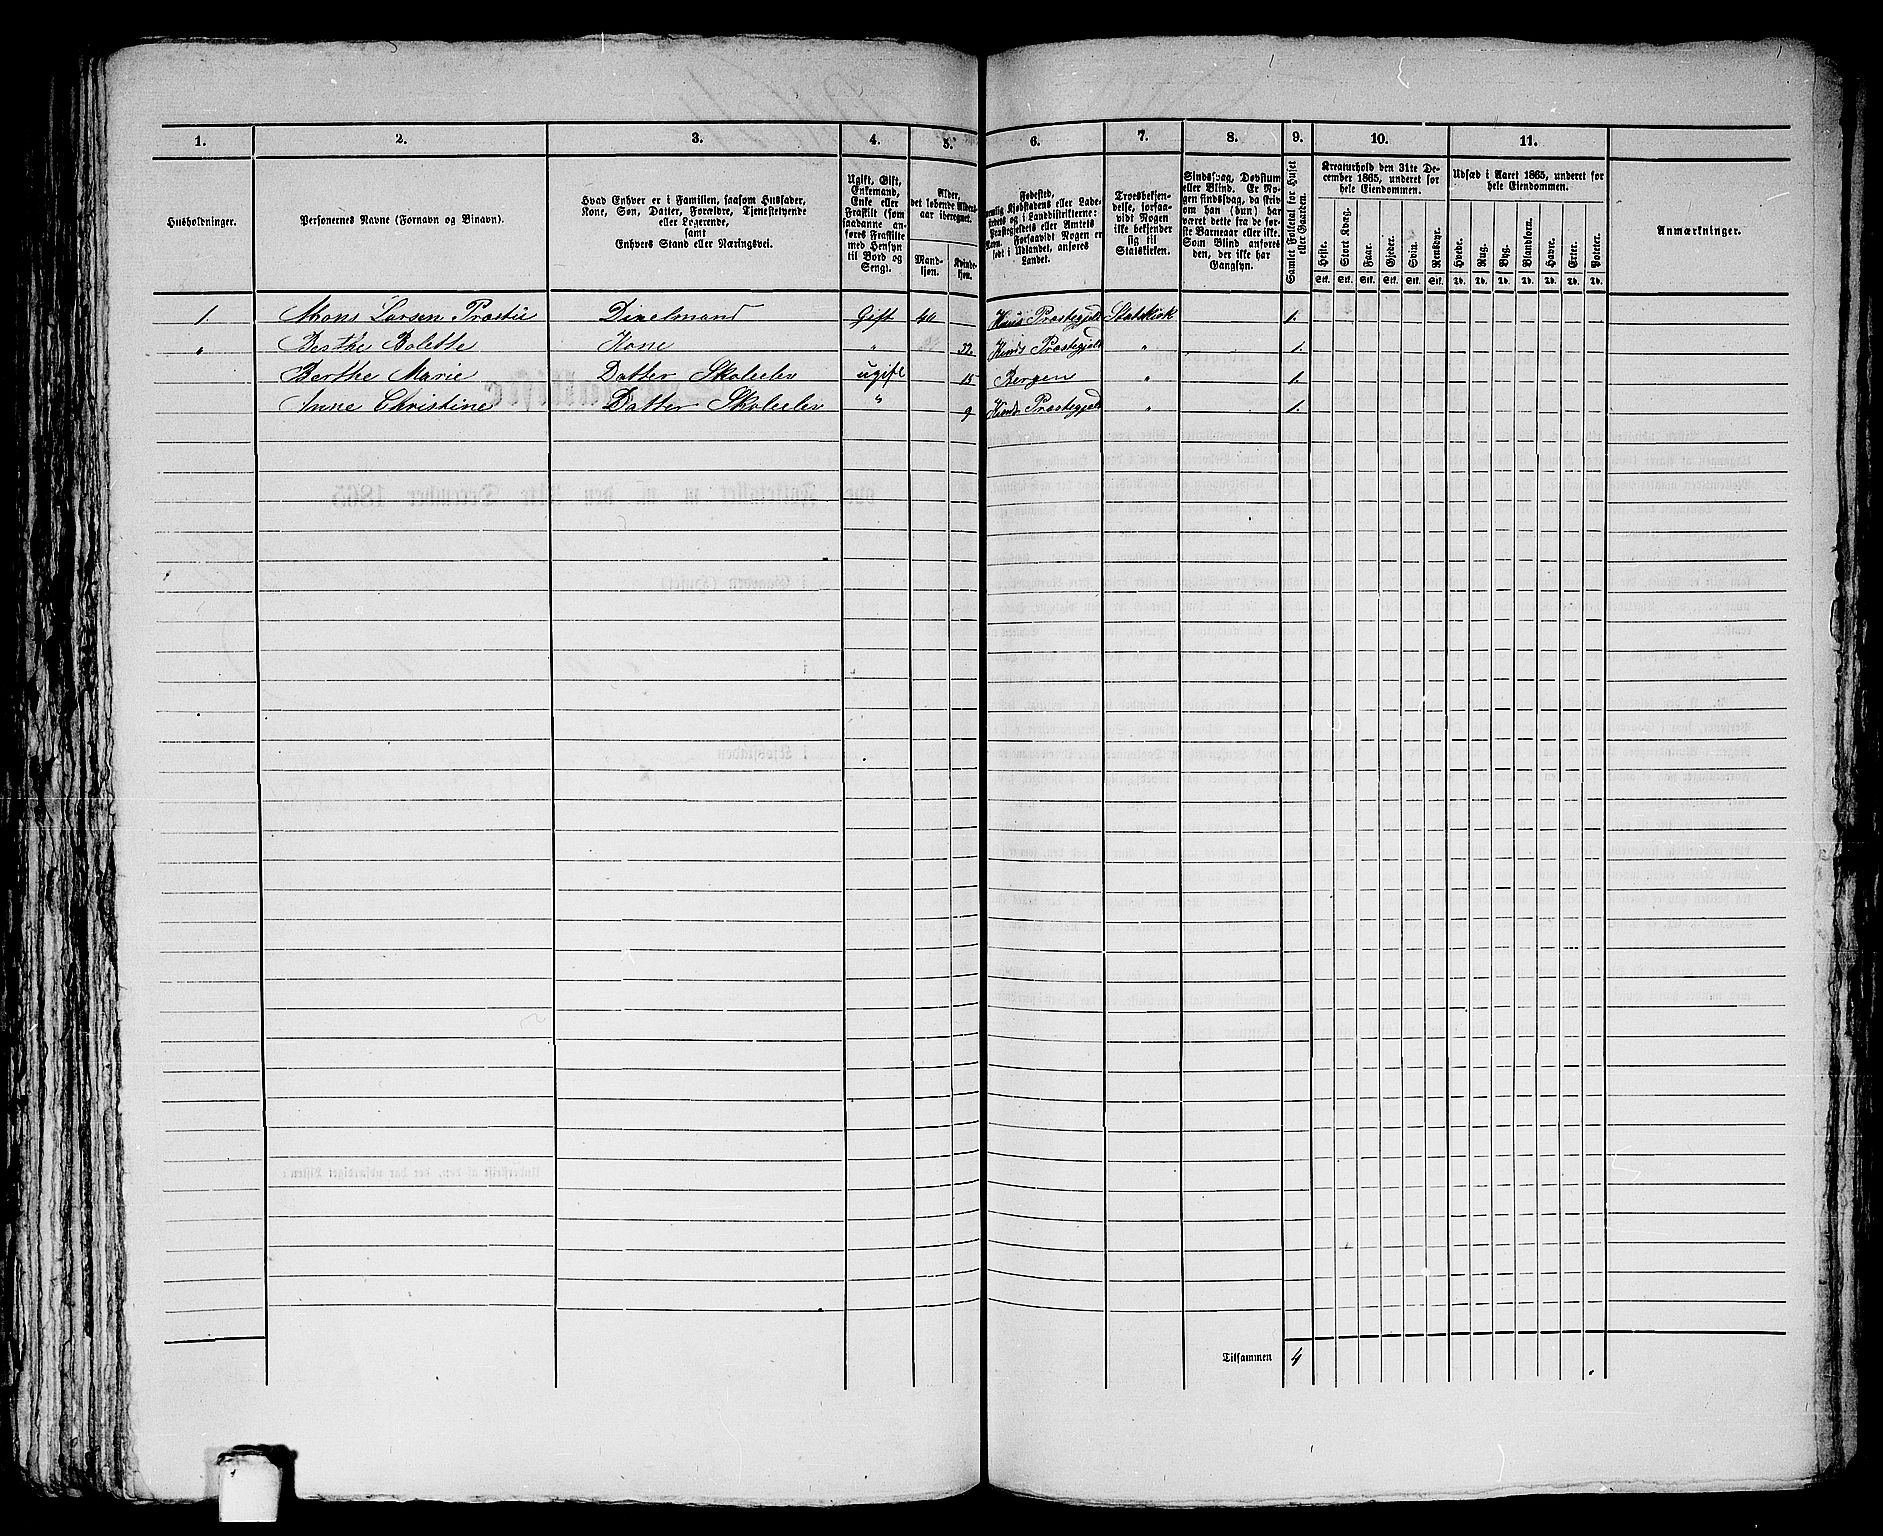 1. 2. 3. 4. 5. 6. 7. 8. 9. 10. 11.
Husholdninger.
Personernes Navne (Fornavn og Binavn).
Hvad Enhver er i Familien, saasom Husfader,
Kone, Søn, Datter, Forældre, Tjenestetyende
eller Logerende,
samt
Enhvers Stand eller Næringsvei.
Ugift, Gift,
Enkemand,
Enke eller
Fraskilt (som
saadanne an-
føres Fraskilte
med Hensyn
til Bord og
Seng).
Alder,
det løbende Alders-
aar iberegnet.
Mand-
kjøn.
Kvinde-
kjøn.
Fødested,
nemlig Kjøbstadens eller Lade-
stedets og i Landdistrikterne:
Præstegjeldets eller Amtets
Navn. Forsaavidt Nogen er
født i Udlandet, anføres
Landet.
Troesbekjen-
delse, forsaa-
vidt Nogen
ikke bekjender
sig til
Statskirken.
Sindssvag, Døvstum
eller Blind. Er No-
gen sindssvag, da skriv
om han (hun) har
været dette fra de før-
ste Barneaar eller ikke.
Som Blind anføres
den, der ikke har
Gangsyn.
Samlet Folketal for Huset
eller Gaarden.
Kreaturhold den 31te De-
cember 1865, underet for
hele Eiendommen.
Heste. Stort Kvæg. Faar. Gjeder. Svin. Rensdyr.
Stk. Stk. Stk. Stk. Stk. Stk.
Udsæd i Aaret 1865, underet for
hele Eiendommen.
Hvede. Rug. Byg. Blandkorn. Havre. Erter. Poteter.
Td. Td. Td. Td. Td. Td. Td.
Anmærkninger.
1. Mons Larsen Gift 40 Præstegjeld Statskirk 1.
" Berthe Bolette Kone " 32. Kinds Præstegjeld " 1.
Berthe Marie Datter Skoleelev ugift 15 Bergen " 1.
Anne Christine Datter Skoleelev " 9 Kinds Præstegjeld " 1.
Tilsammen 4